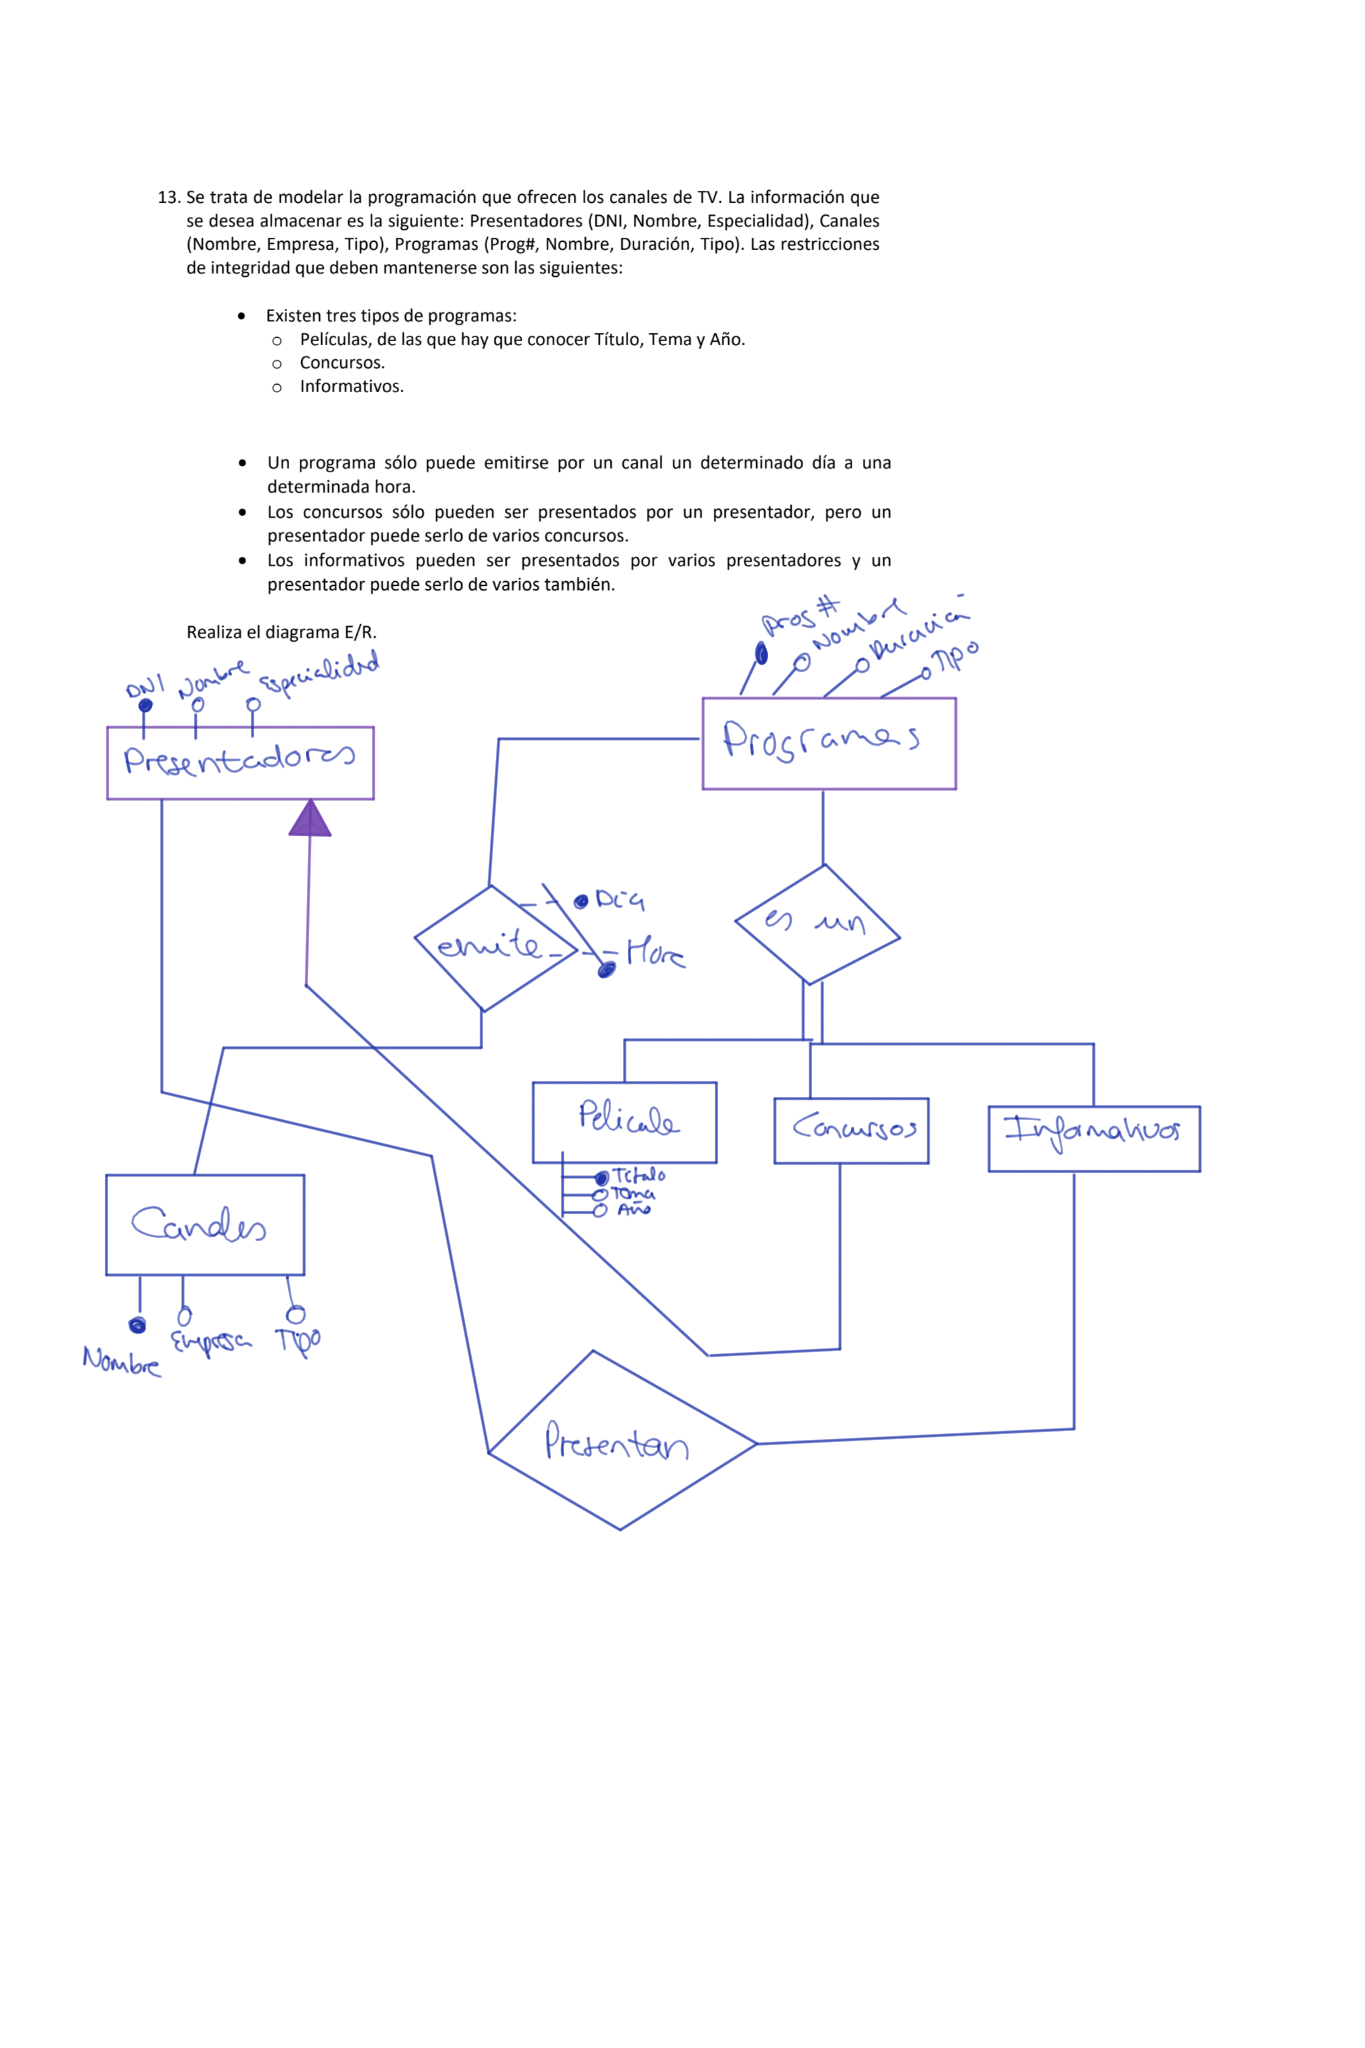 13. Se trata de modelar la programación que ofrecen los canales de TV. La información que
se desea almacenar es la siguiente: Presentadores (DNI, Nombre, Especialidad), Canales
(Nombre, Empresa, Tipo), Programas (Prog#, Nombre, Duración, Tipo). Las restricciones
de integridad que deben mantenerse son las siguientes:
• Existen tres tipos de programas:
o Películas, de las que hay que conocer Título, Tema y Año.
o Concursos.
o Informativos.
• Un programa sólo puede emitirse por un canal un determinado día a una
determinada hora.
• Los concursos sólo pueden ser presentados por un presentador, pero un
presentador puede serlo de varios concursos.
• Los informativos pueden ser presentados por varios presentadores y un
presentador puede serlo de varios también.
Realiza el diagrama E/R.
Prog #
Nombre
Duración
Tipo
DNI
Nombre
Especialidad
Presentadores
Programas
emite
Día
Hora
es un
Película
Título
Tema
Año
Concursos
Informativos
Canales
Nombre
Empresa
Tipo
Presentan